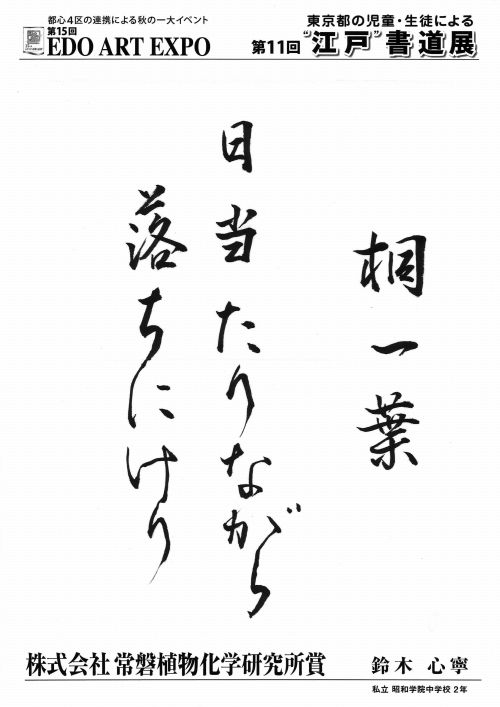 都心4区の連携による秋の一大イベント
第15回
EDO ART EXPO
東京都の児童・生徒による
第11回 "江戸"書道展
桐一葉
日当たりながら
落ちにけり
株式会社 常磐植物化学研究所賞
鈴木 心寧
私立 昭和学院中学校 2年